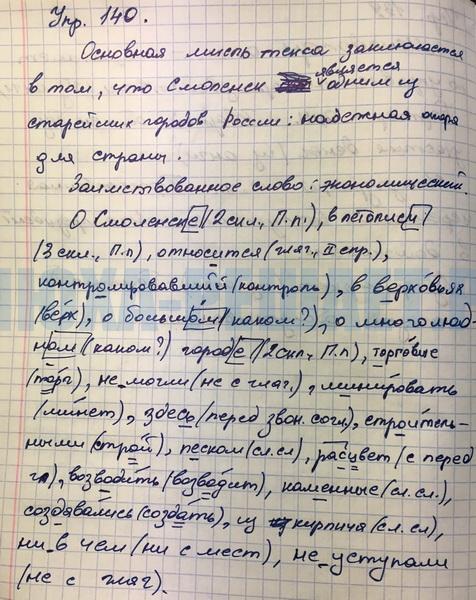 Упр. 140.
Основная мысль текса заключается
в том, что Смоленск является одним из
старейших городов России: надежная опора
для страны.
Заимствованное слово: экономический.
О Смоленске (2 скл., П.п.), в летописи
(3 скл., П.п), относится (глаг., II спр.),
контролировавший (контроль), в верховьях
(верх), о большом (каком?), о многолюд-
ном (каком?) городе (2 скл., П.п), торговые
(торг), не могли (не с глаг.), минировать
(минет), здесь (перед звон. согл.), строитель-
ными (строй), песком (сл.сл), расцвет (с перед
гл), возводить (возводит), каменные (сл.сл.),
создавались (создать), из кирпича (сл.сл),
ни в чем (ни с мест), не уступали
(не с глаг).